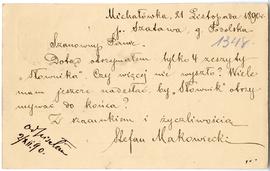 Michałowka, 21 Listopada 1890 r.
p. Szatawa, g. Podolska
1348
Szanowny Panie,
Dotąd otrzymałem tylko 4 zeszyty
"Słownika". Czy więcej nie wyszło? Wiele
mam jeszcze nadesłać, by "Słownik" otrzy
mywać do końca?
Z szacunkiem i życzliwością
Stefan Makowiecki
90.